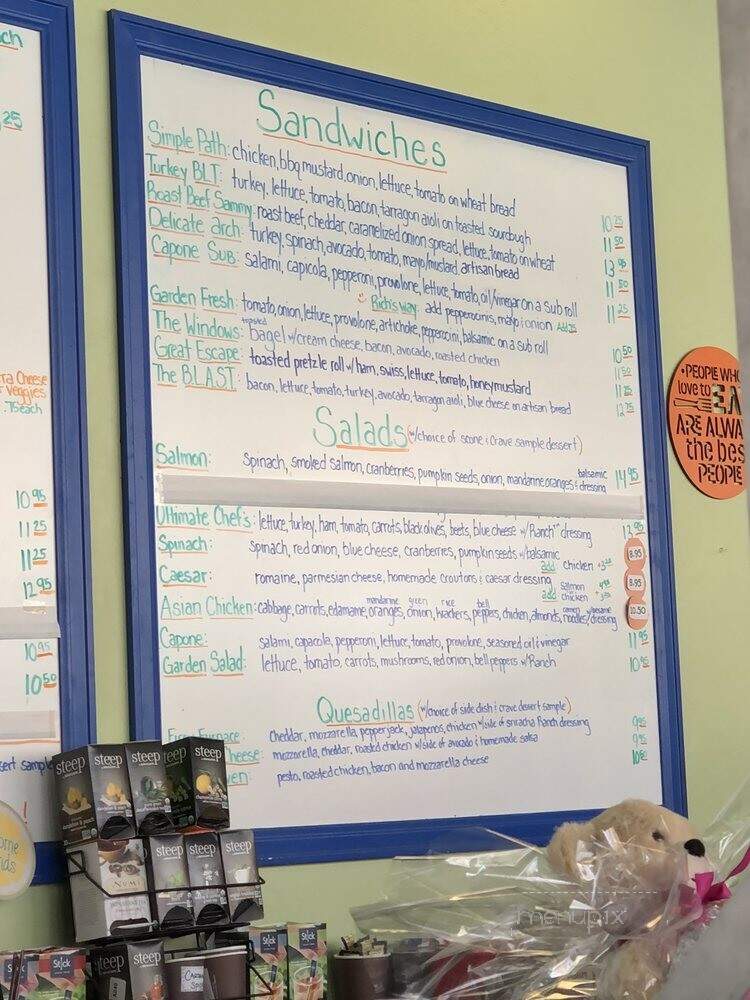 ch
25
ra Cheese
r Veggies
.75 each
10 95
11 25
11 25
12 95
10 95
10 50
sert sample
Sandwiches
Simple Path: chicken, bbq mustard, onion, lettuce, tomato on wheat bread 10 25
Turkey BLT: turkey, lettuce, tomato, bacon, tarragon aioli on toasted sourdough 11 50
Roast Beef Sammy: roast beef, cheddar, caramelized onion spread, lettuce, tomato on wheat 13 95
Delicate arch: turkey, spinach, avocado, tomato, mayo/mustard artisan bread 11 50
Capone Sub: salami, capicola, pepperoni, provolone, lettuce, tomato, oil/vinegar on a sub roll 11 25
Rich's way: add pepperocinis, mayo i onion Add .75
Garden Fresh: tomato, onion, lettuce, provolone, artichoke, pepperocini, balsamic on a sub roll 10 50
The Windows: toasted Bagel w/cream cheese, bacon, avocado, roasted chicken 11 50
Great Escape: toasted pretzle roll w/ ham, swiss, lettuce, tomato, honey mustard 11 25
The B.L.A.S.T.: bacon, lettuce, tomato, turkey, avocado, tarragon aioli, blue cheese on artisan bread 12 75
Salads (w/choice of scone i Crave sample dessert)
Salmon: Spinach, smoked salmon, cranberries, pumpkin seeds, onion, mandarine oranges i balsamic dressing 14 95
Ultimate Chef's: lettuce, turkey, ham, tomato, carrots, black olives, beets, blue cheese w/Ranch dressing 12 95
Spinach: Spinach, red onion, blue cheese, cranberries, pumpkin seeds w/balsamic 8.95
add chicken +3
Caesar: romaine, parmesian cheese, homemade croutons i caesar dressing 8.95
add salmon
chicken
Asian Chicken: cabbage, carrots, edamame, mandarine oranges, green onion, rice krackers, bell peppers, chicken, almonds, noodles w/sesame dressing 10.50
Capone: salami, capacola, pepperoni, lettuce, tomato, provolone, seasoned oil i vinegar 11 95
Garden Salad: lettuce, tomato, carrots, mushrooms, red onion, bell peppers w/Ranch 10 95
Quesadillas (w/choice of side dish i crave dessert sample)
Furnace: cheddar, mozzarella, pepperjack, jalapenos, chicken w/side of sriracha Ranch dressing 9 95
Cheese: mozzarella, cheddar, roasted chicken w/side of avocado i homemade salsa 9 95
ven: pesto, roasted chicken, bacon and mozzarella cheese
• PEOPLE WHO
love to EA
ARE ALWA
the bes
PEOPLE
steep steep steep steep steep
steep steep steep
NUMI
steep steep
Stick Stick
Stick
menupix